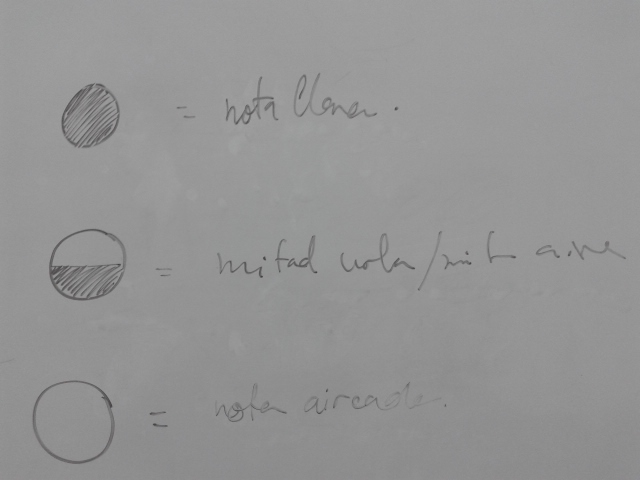 = nota llena.
= mitad nota/mitad aire
= nota aireada.